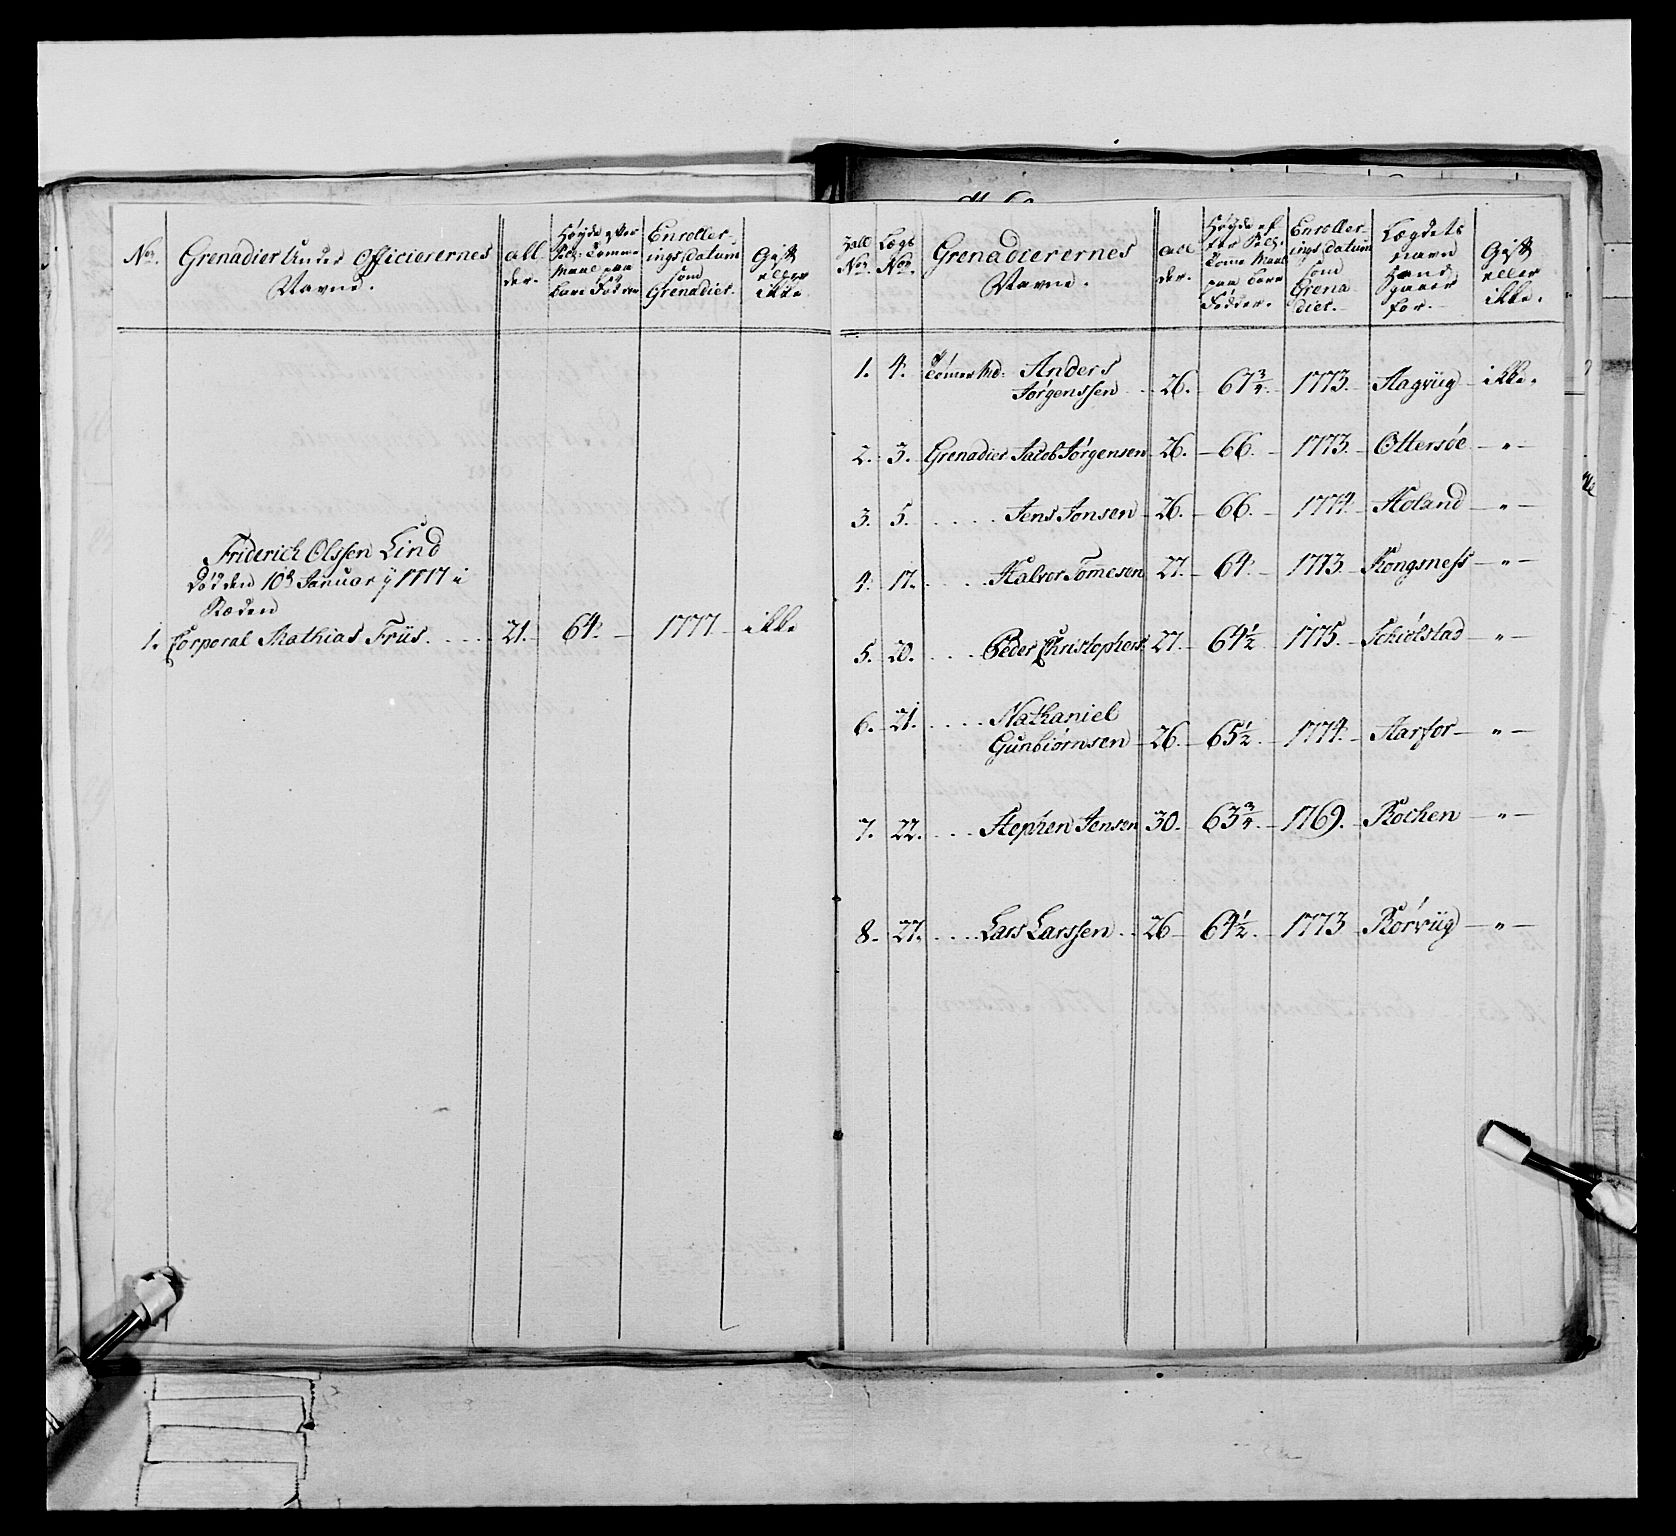 Nor. Grenadier Under Officierernes Navne. all der. Høyde efter Sælg: Tomme Maal paa bare Fødder Enroller- ings Datum som Grenadier. Gift eller ikke.
Friderich Olssen Lind
Død den 10de Januarÿ 1777 i
Ræden
1. Corporal Mathias Friis. 21. 64. 1777 ikke
Tall Nor. Lægs Nor. Grenadierernes Navne. all der. Høyde ef ter Sælg. Tomme Maal paa bare Fødder. Enroller ings Datum som Grena dier. Lægdets navn hand gaaer for. Gift eller ikke.
1. 4. Tømermd: Anders
Jørgenssen 26. 67 3/4. 1773. Aagviig ikke.
2. 3. Grenadier Jacob Jørgensen 26. 66. 1773. Ottersøe — " —
3. 5. Jens Jonsen 26. 66. 1774. Holand — " —
4. 17. Halvor Tomesen 27. 64. 1773. Kongsness — " —
5. 20. Peder Christophers: 27. 64 1/2 1775. Schiolstad — " —
6. 21. Nathaniel
Gunbiørnsen 26. 65 1/2. 1774. Aarfor — " —
7. 22. Stephen Jensen 30. 63 3/4. 1769. Rochen — " —
8. 27. Lars Larssen 26 64 1/2. 1773 Rørviig — " —